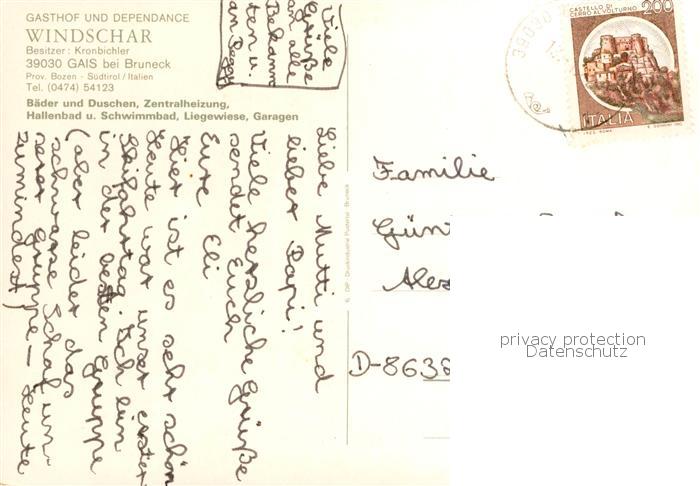 GASTHOF UND DEPENDANCE
WINDSCHAR
Besitzer: Kronbichler
39030 GAIS bei Bruneck
Prov. Bozen - Südtirol / Italien
Tel. (0474) 54123
Bäder und Duschen, Zentralheizung,
Hallenbad u. Schwimmbad, Liegewiese, Garagen
Viele
Grüße
an alle
Bekann
ten u.
an
Liebe Mutti und
lieber Papi!
Viele herzliche Grüße
sendet Euch
Eure Eli
Hier ist es sehr schön
Heute war unser erster
Skifahrtag. Ich bin
in der besten Gruppe
(aber leider das
schwarze Schaf un-
serer Gruppe – Heute
zumindest)
Familie
Gün
Ales
D-8638
39030
CASTELLO DI
CERRO AL VOLTURNO
200
ITALIA
privacy protection
Datenschutz